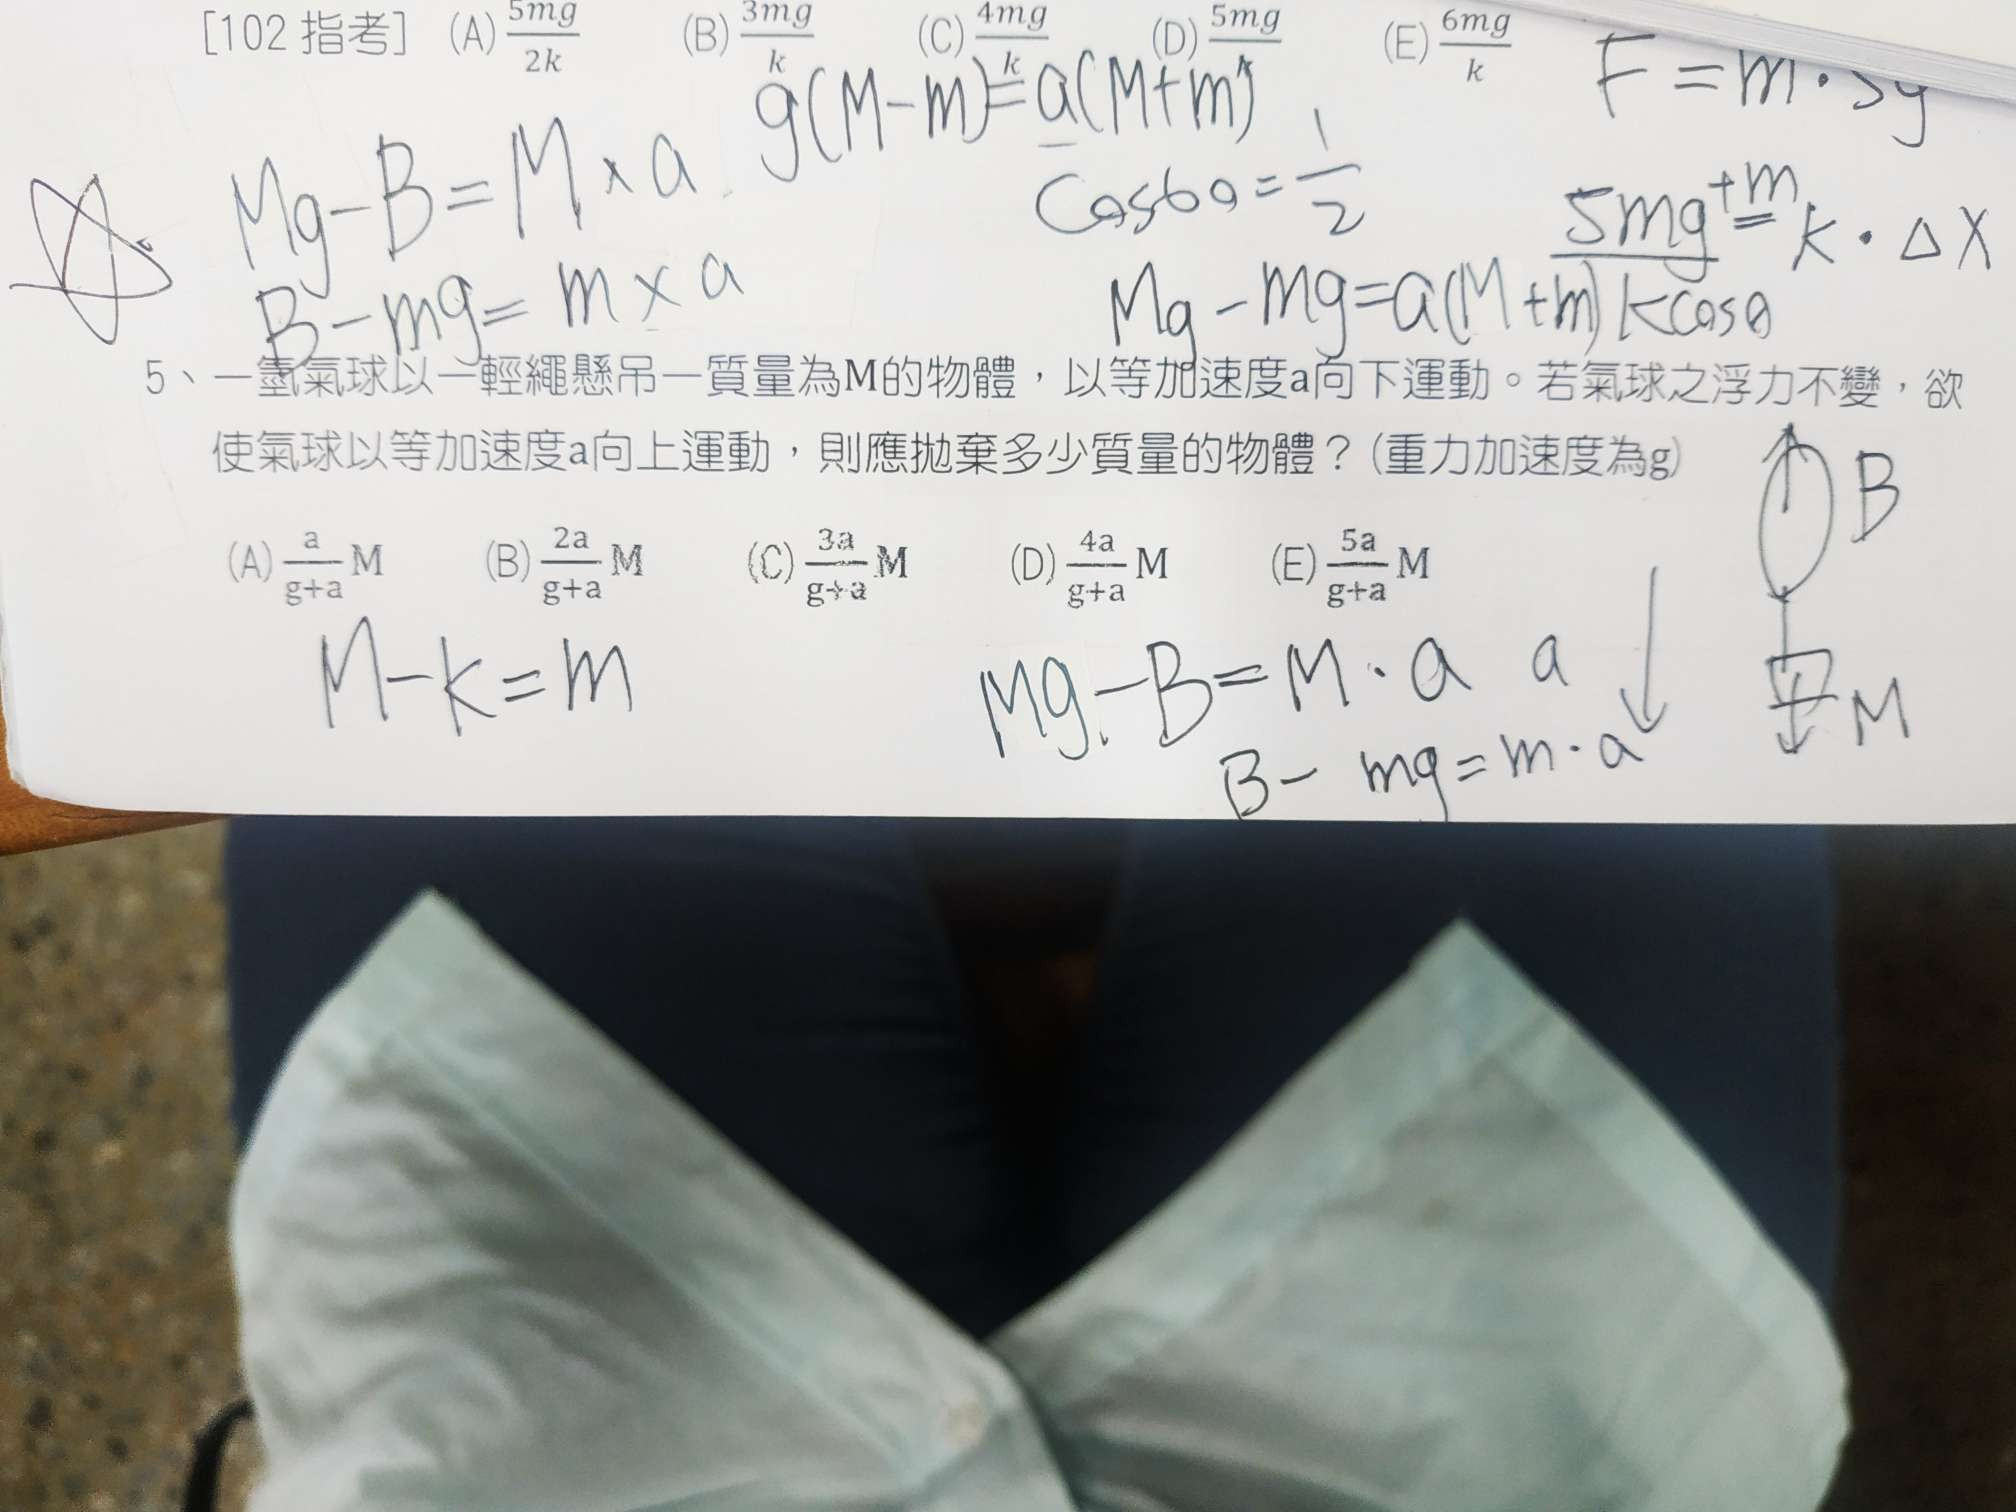 [102 指考] (A) 5mg/2k (B) 3mg/k (C) 4mg/k (D) 5mg/k (E) 6mg/k
F = m ·
g(M-m) = a(M+m)
Mg - B = M × a
cos60 = 1/2
5mg + m = k · ΔX
B - mg = m × a
Mg - mg = a(M+m) kcosθ
5、一氫氣球以一輕繩懸吊一質量為M的物體，以等加速度a向下運動。若氣球之浮力不變，欲
使氣球以等加速度a向上運動，則應拋棄多少質量的物體？(重力加速度為g)
B
(A) a/g+a M (B) 2a/g+a M (C) 3a/g+a M (D) 4a/g+a M (E) 5a/g+a M
M - k = m
Mg - B = M · a a
M
B - mg = m · a